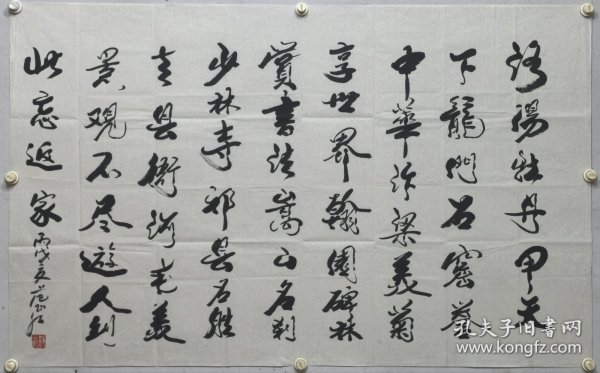 洛陽牡丹甲天
下龍門石窟譽
中華汴梁美菊
享世界翰園碑林
賞書法嵩山名刹
少林寺祁县名胜
去县衙河毛美
景观不尽遊人到
此忘返家
丙戌夏
孔夫子旧书网
www.kongfz.com